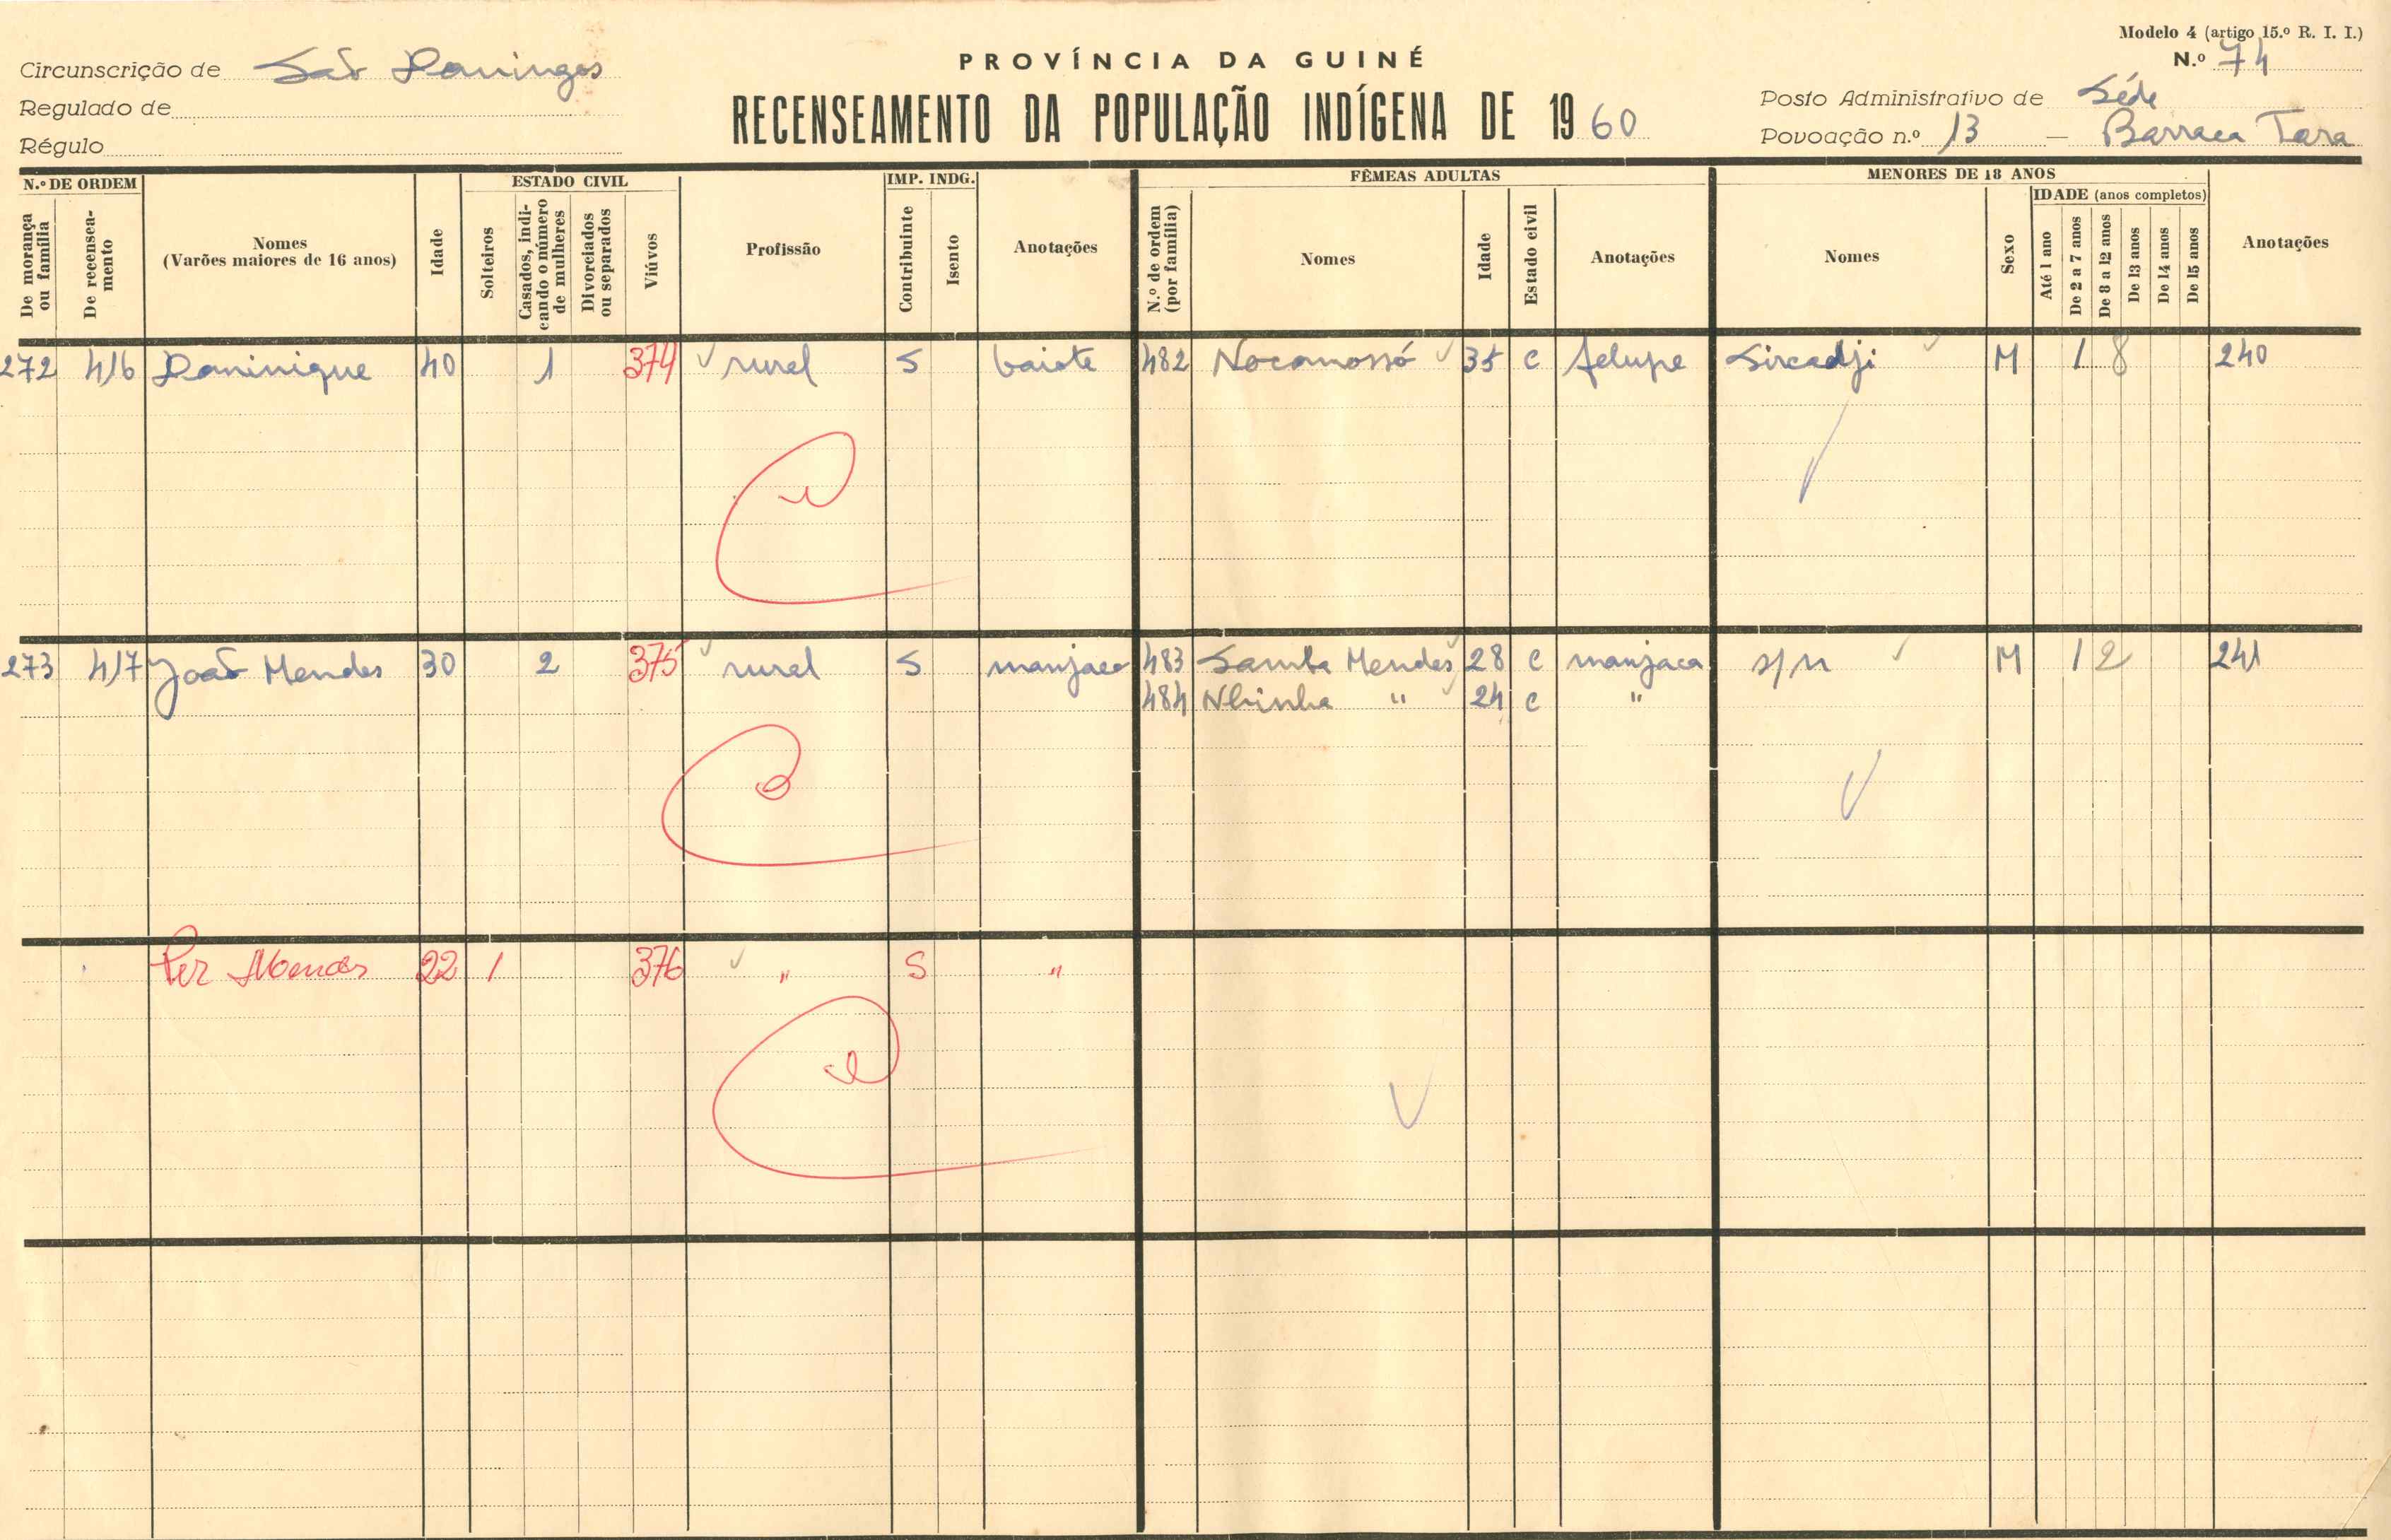 Modelo 4 (artigo 15.º R. I. I.)
PROVÍNCIA DA GUINÉ
N.º 74
Circunscrição de São Domingos
Regulado de
Régulo
RECENSEAMENTO DA POPULAÇÃO INDÍGENA DE 1960
Posto Administrativo de Séde
Povoação n.º 13 — Barraca Tara
N.º DE ORDEM
De morança ou família
De recenseamento
Nomes
(Varões maiores de 16 anos)
Idade
ESTADO CIVIL
Solteiros
Casados, indicando o número de mulheres
Divorciados ou separados
Viúvos
Profissão
IMP. INDG.
Contribuinte
Isento
Anotações
FÊMEAS ADULTAS
N.º de ordem (por família)
Nomes
Idade
Estado civil
Anotações
MENORES DE 18 ANOS
Nomes
Sexo
IDADE (anos completos)
Até 1 ano
De 2 a 7 anos
De 8 a 12 anos
De 13 anos
De 14 anos
De 15 anos
Anotações
272 416 Dominique 40 1 374 rural S baiote 482 Nocomossó 35 C felupe Sircadji M 1 8 240
273 417 João Mendes 30 2 375 rural S manjaco 483 Samba Mendes 28 C manjaca s/n M 1 2 241
484 Nhinha " 24 C "
Per Mendes 22 1 376 " S "